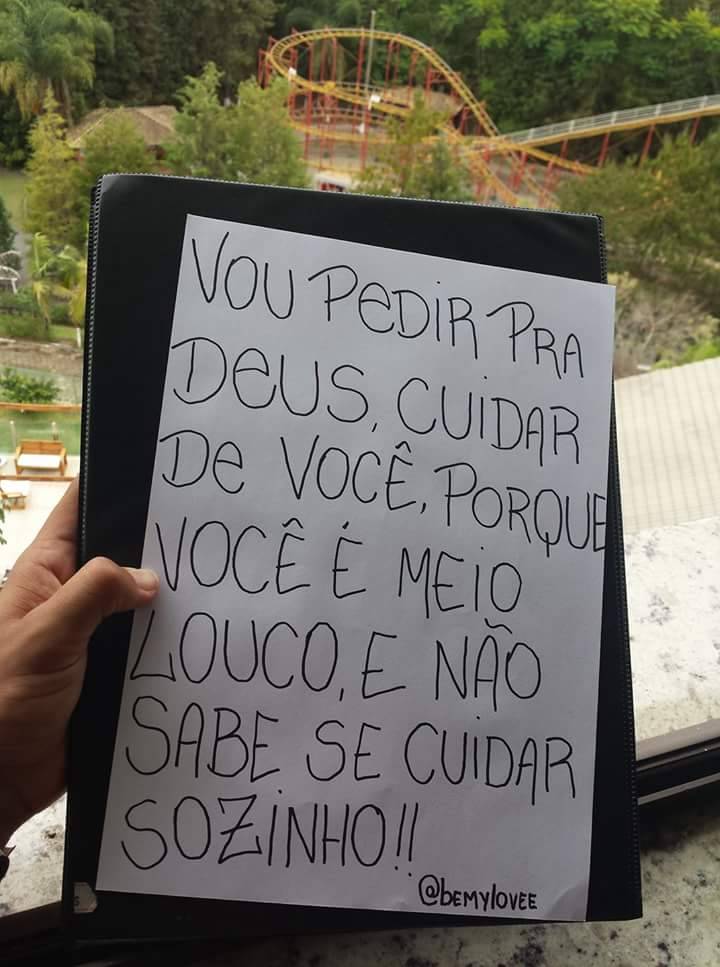 VOU PeDiR PRA
DeUS, CUiDAR
De VOCÊ, PORQUE
VOCÊ É MEiO
LOUCO, E NÃO
SABE SE CUiDAR
SOZiNHO!!
@beMyloVEE